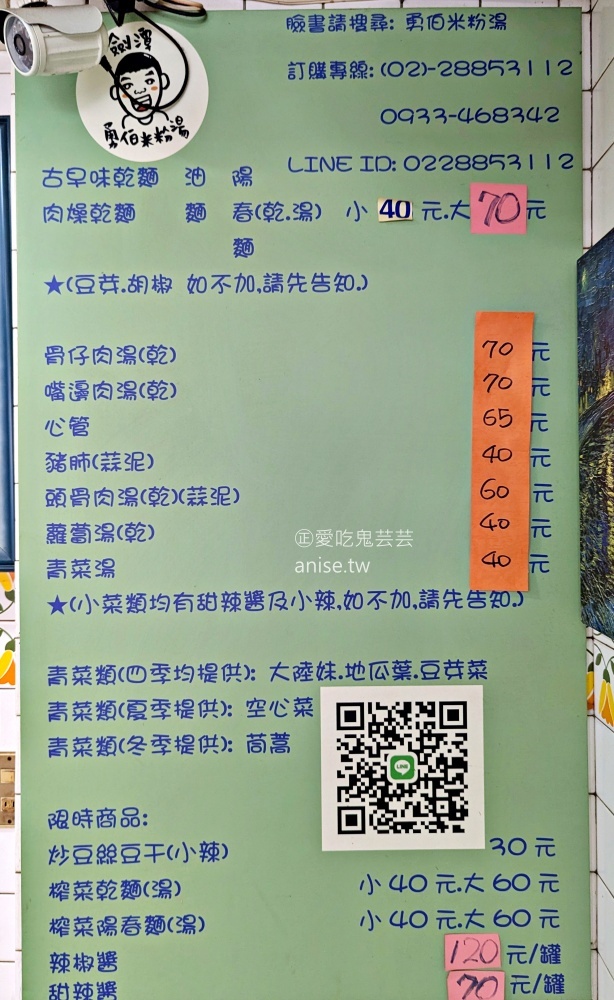 臉書請搜尋: 勇伯米粉湯
劍潭
勇伯米粉湯
訂購專線: (02)-28853112
0933-468342
LINE ID: 0228853112
古早味乾麵 油 陽
肉燥乾麵 麵 春(乾.湯) 小 40 元.大 70 元
麵
★(豆芽.胡椒 如不加,請先告知.)
骨仔肉湯(乾) 70 元
嘴邊肉湯(乾) 70 元
心管 65 元
豬肺(蒜泥) 40 元
頭骨肉湯(乾)(蒜泥) 60 元
蘿蔔湯(乾) 40 元
青菜湯 40 元
㊣愛吃鬼芸芸
anise.tw
★(小菜類均有甜辣醬及小辣,如不加,請先告知.)
青菜類(四季均提供): 大陸妹.地瓜葉.豆芽菜
青菜類(夏季提供): 空心菜
青菜類(冬季提供): 茼蒿
LINE
限時商品:
炒豆絲豆干(小辣) 30 元
榨菜乾麵(湯) 小 40 元.大 60 元
榨菜陽春麵(湯) 小 40 元.大 60 元
辣椒醬 120 元/罐
甜辣醬 70 元/罐